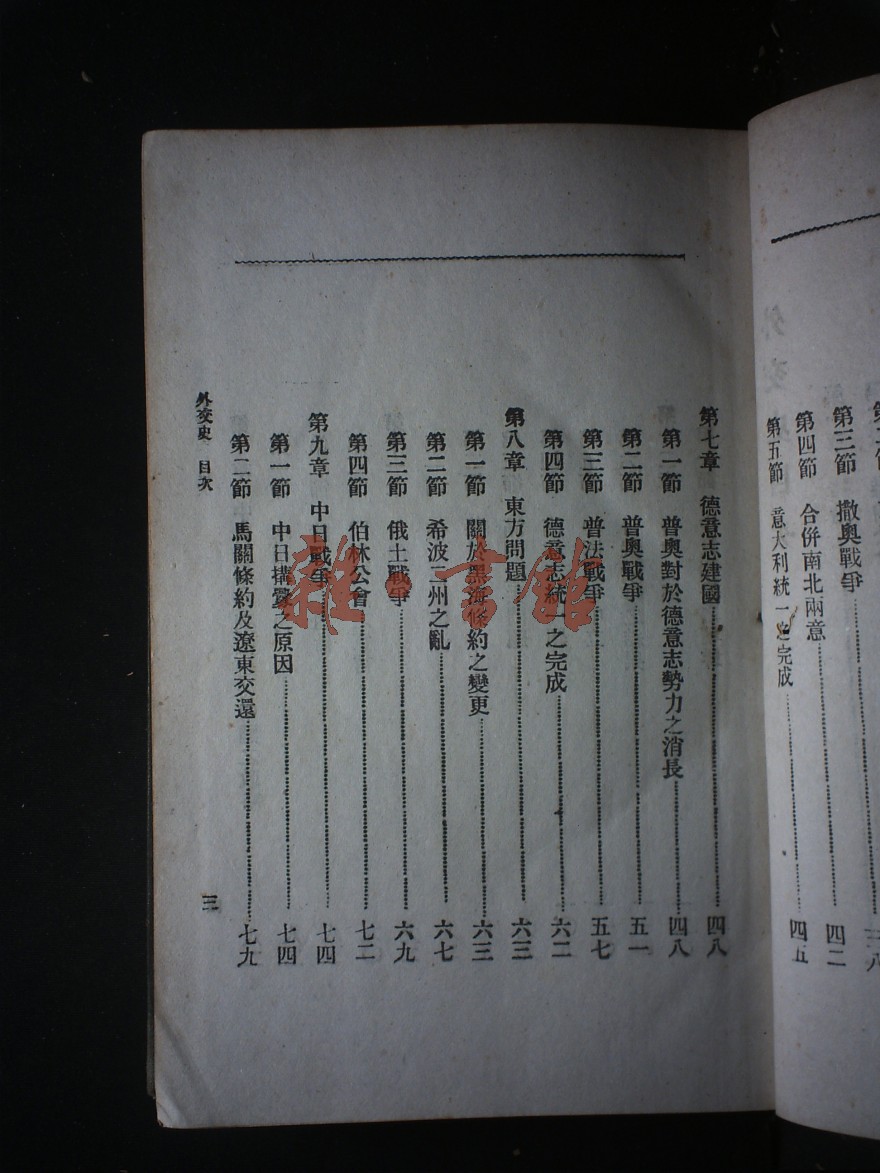 第三節 撒奧戰爭 四二
第四節 合併南北兩意
第五節 意大利統一之完成 四五
第七章 德意志建國 四八
第一節 普奧對於德意志勢力之消長 四八
第二節 普奧戰爭 五一
第三節 普法戰爭 五七
第四節 德意志統一之完成 六二
第八章 東方問題 六三
第一節 關於黑海條約之變更 六三
第二節 希波二州之亂 六七
第三節 俄土戰爭 六九
第四節 伯林公會 七二
第九章 中日戰爭 七四
第一節 中日搆釁之原因 七四
第二節 馬關條約及遼東交還 七九
外交史 目次 三
雜·書館